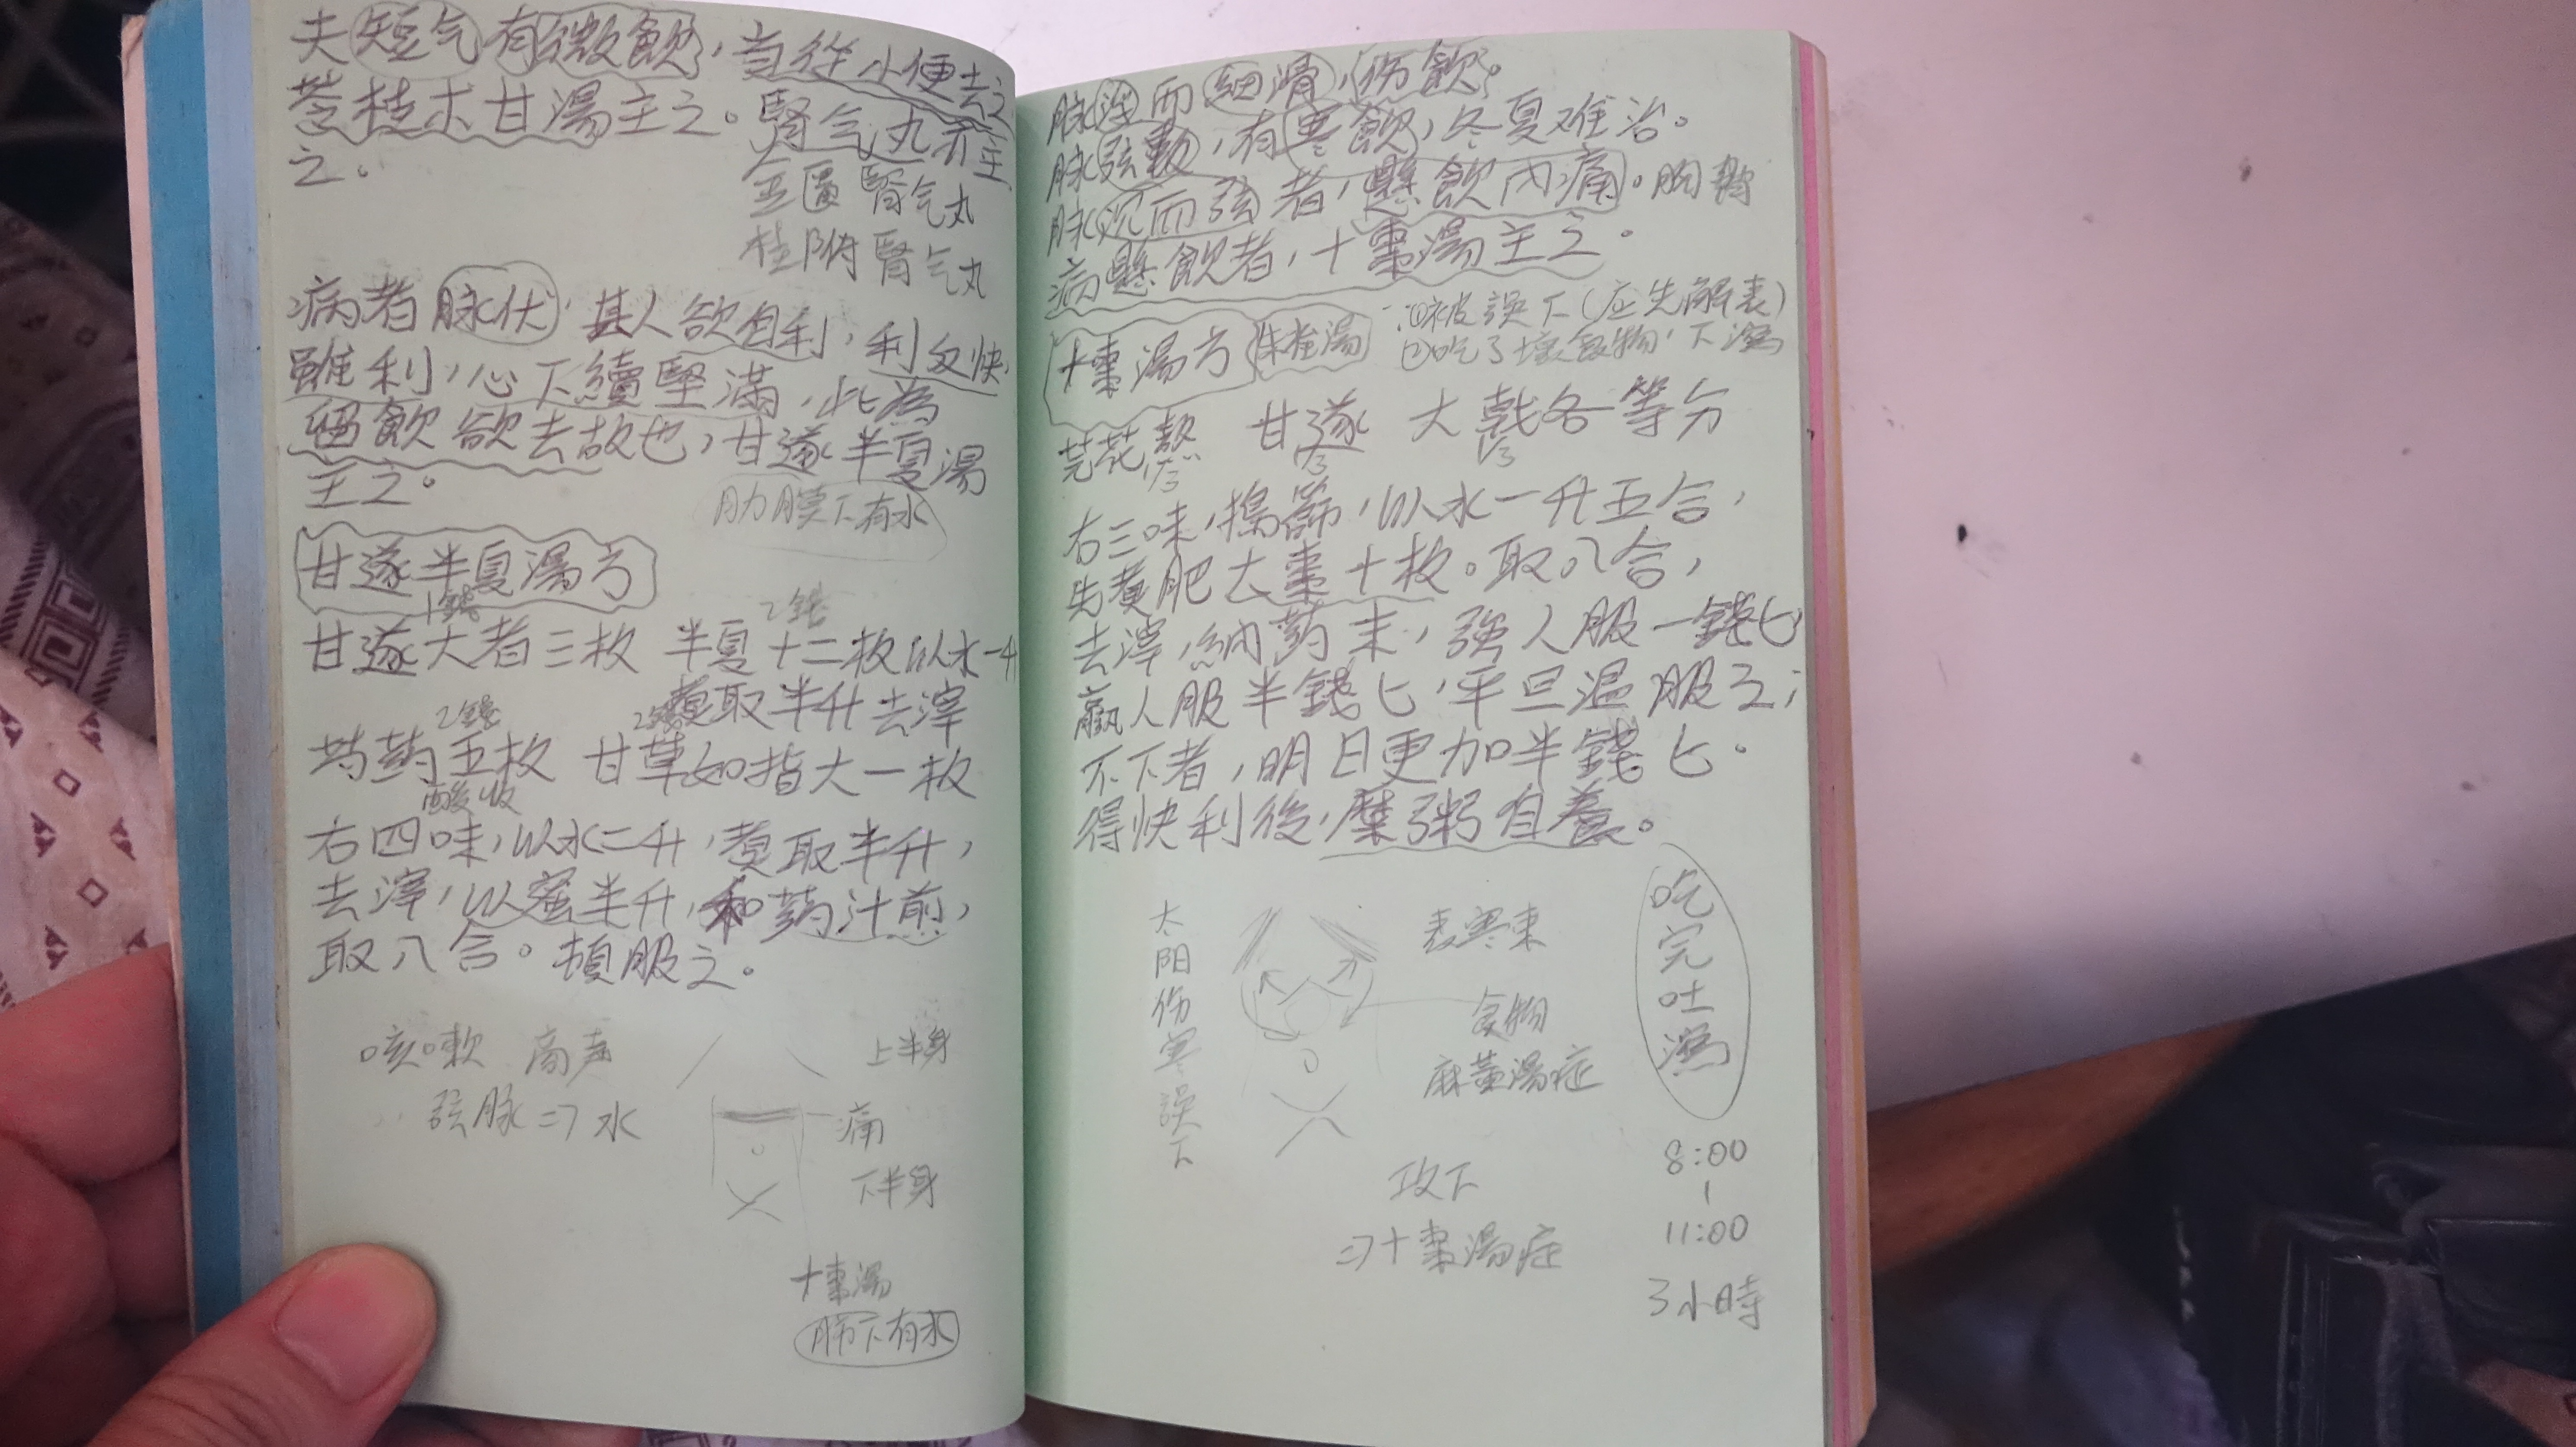 夫短气有微飲，当從小便去之
苓桂朮甘湯主之。腎气丸亦主
之。
金匱腎气丸
桂附腎气丸
病者脉伏，其人欲自利，利反快，
雖利，心下續堅滿，此為
留飲欲去故也，甘遂半夏湯
主之。
肋膜下有水
甘遂半夏湯方
1錢 2錢
甘遂大者三枚 半夏十二枚以水一升
煮取半升去滓
2錢 2錢
芍药五枚 甘草如指大一枚
酸收
右四味，以水二升，煮取半升，
去滓，以蜜半升，和药汁煎，
取八合。頓服之。
咳嗽 高声
弦脉 => 水
上半身
痛
下半身
十棗湯
肺下有水
脉浮而細滑，伤飲。
脉弦數，有寒飲，冬夏难治。
脉沉而弦者，懸飲內痛。胸
病懸飲者，十棗湯主之。
十棗湯方
∴①被誤下(应先解表)
②吃了壞食物，下瀉
芫花熬 甘遂 大戟各等分
1/3 1/3 1/3
右三味，搗篩，以水一升五合，
先煮肥大棗十枚。取八合，
去滓，納药末，強人服一錢匕，
羸人服半錢匕，平旦溫服之；
不下者，明日更加半錢匕。
得快利後，糜粥自養。
吃完吐瀉
太阳伤寒誤下
表寒束
食物
麻黃湯症
攻下
=>十棗湯症
8:00
|
11:00
3小時